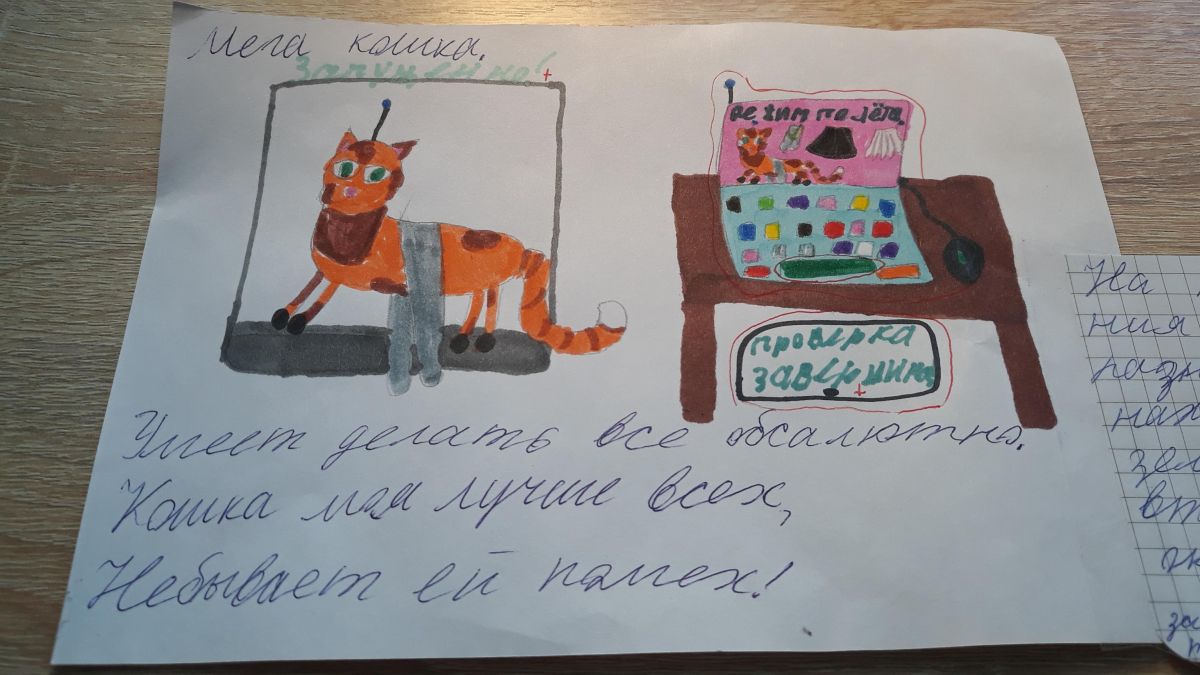 Мега кошка.
Запущенно!
режим полёта
проверка
завершина
Умеет делать все обсалютно.
Кошка моя лучше всех,
Небывает ей помех!
На
ния
разн
нах
зел
вт
за